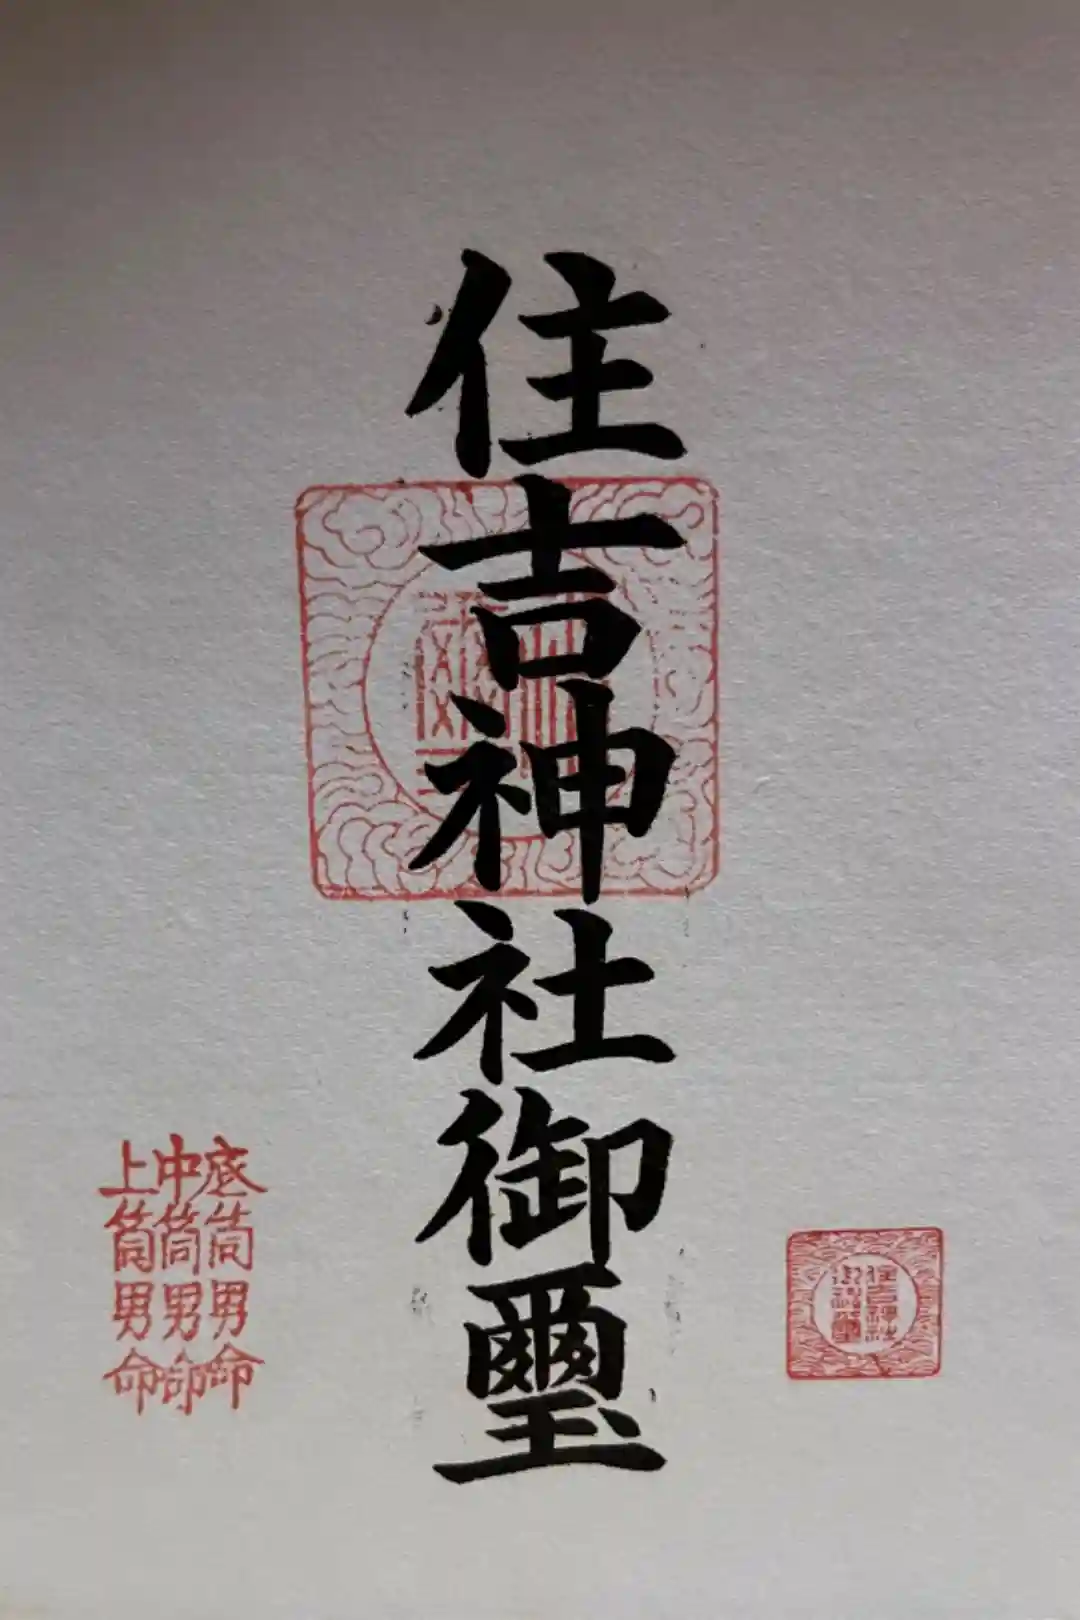 住吉神社御璽
底筒男命
中筒男命
上筒男命
住吉神社
御神璽